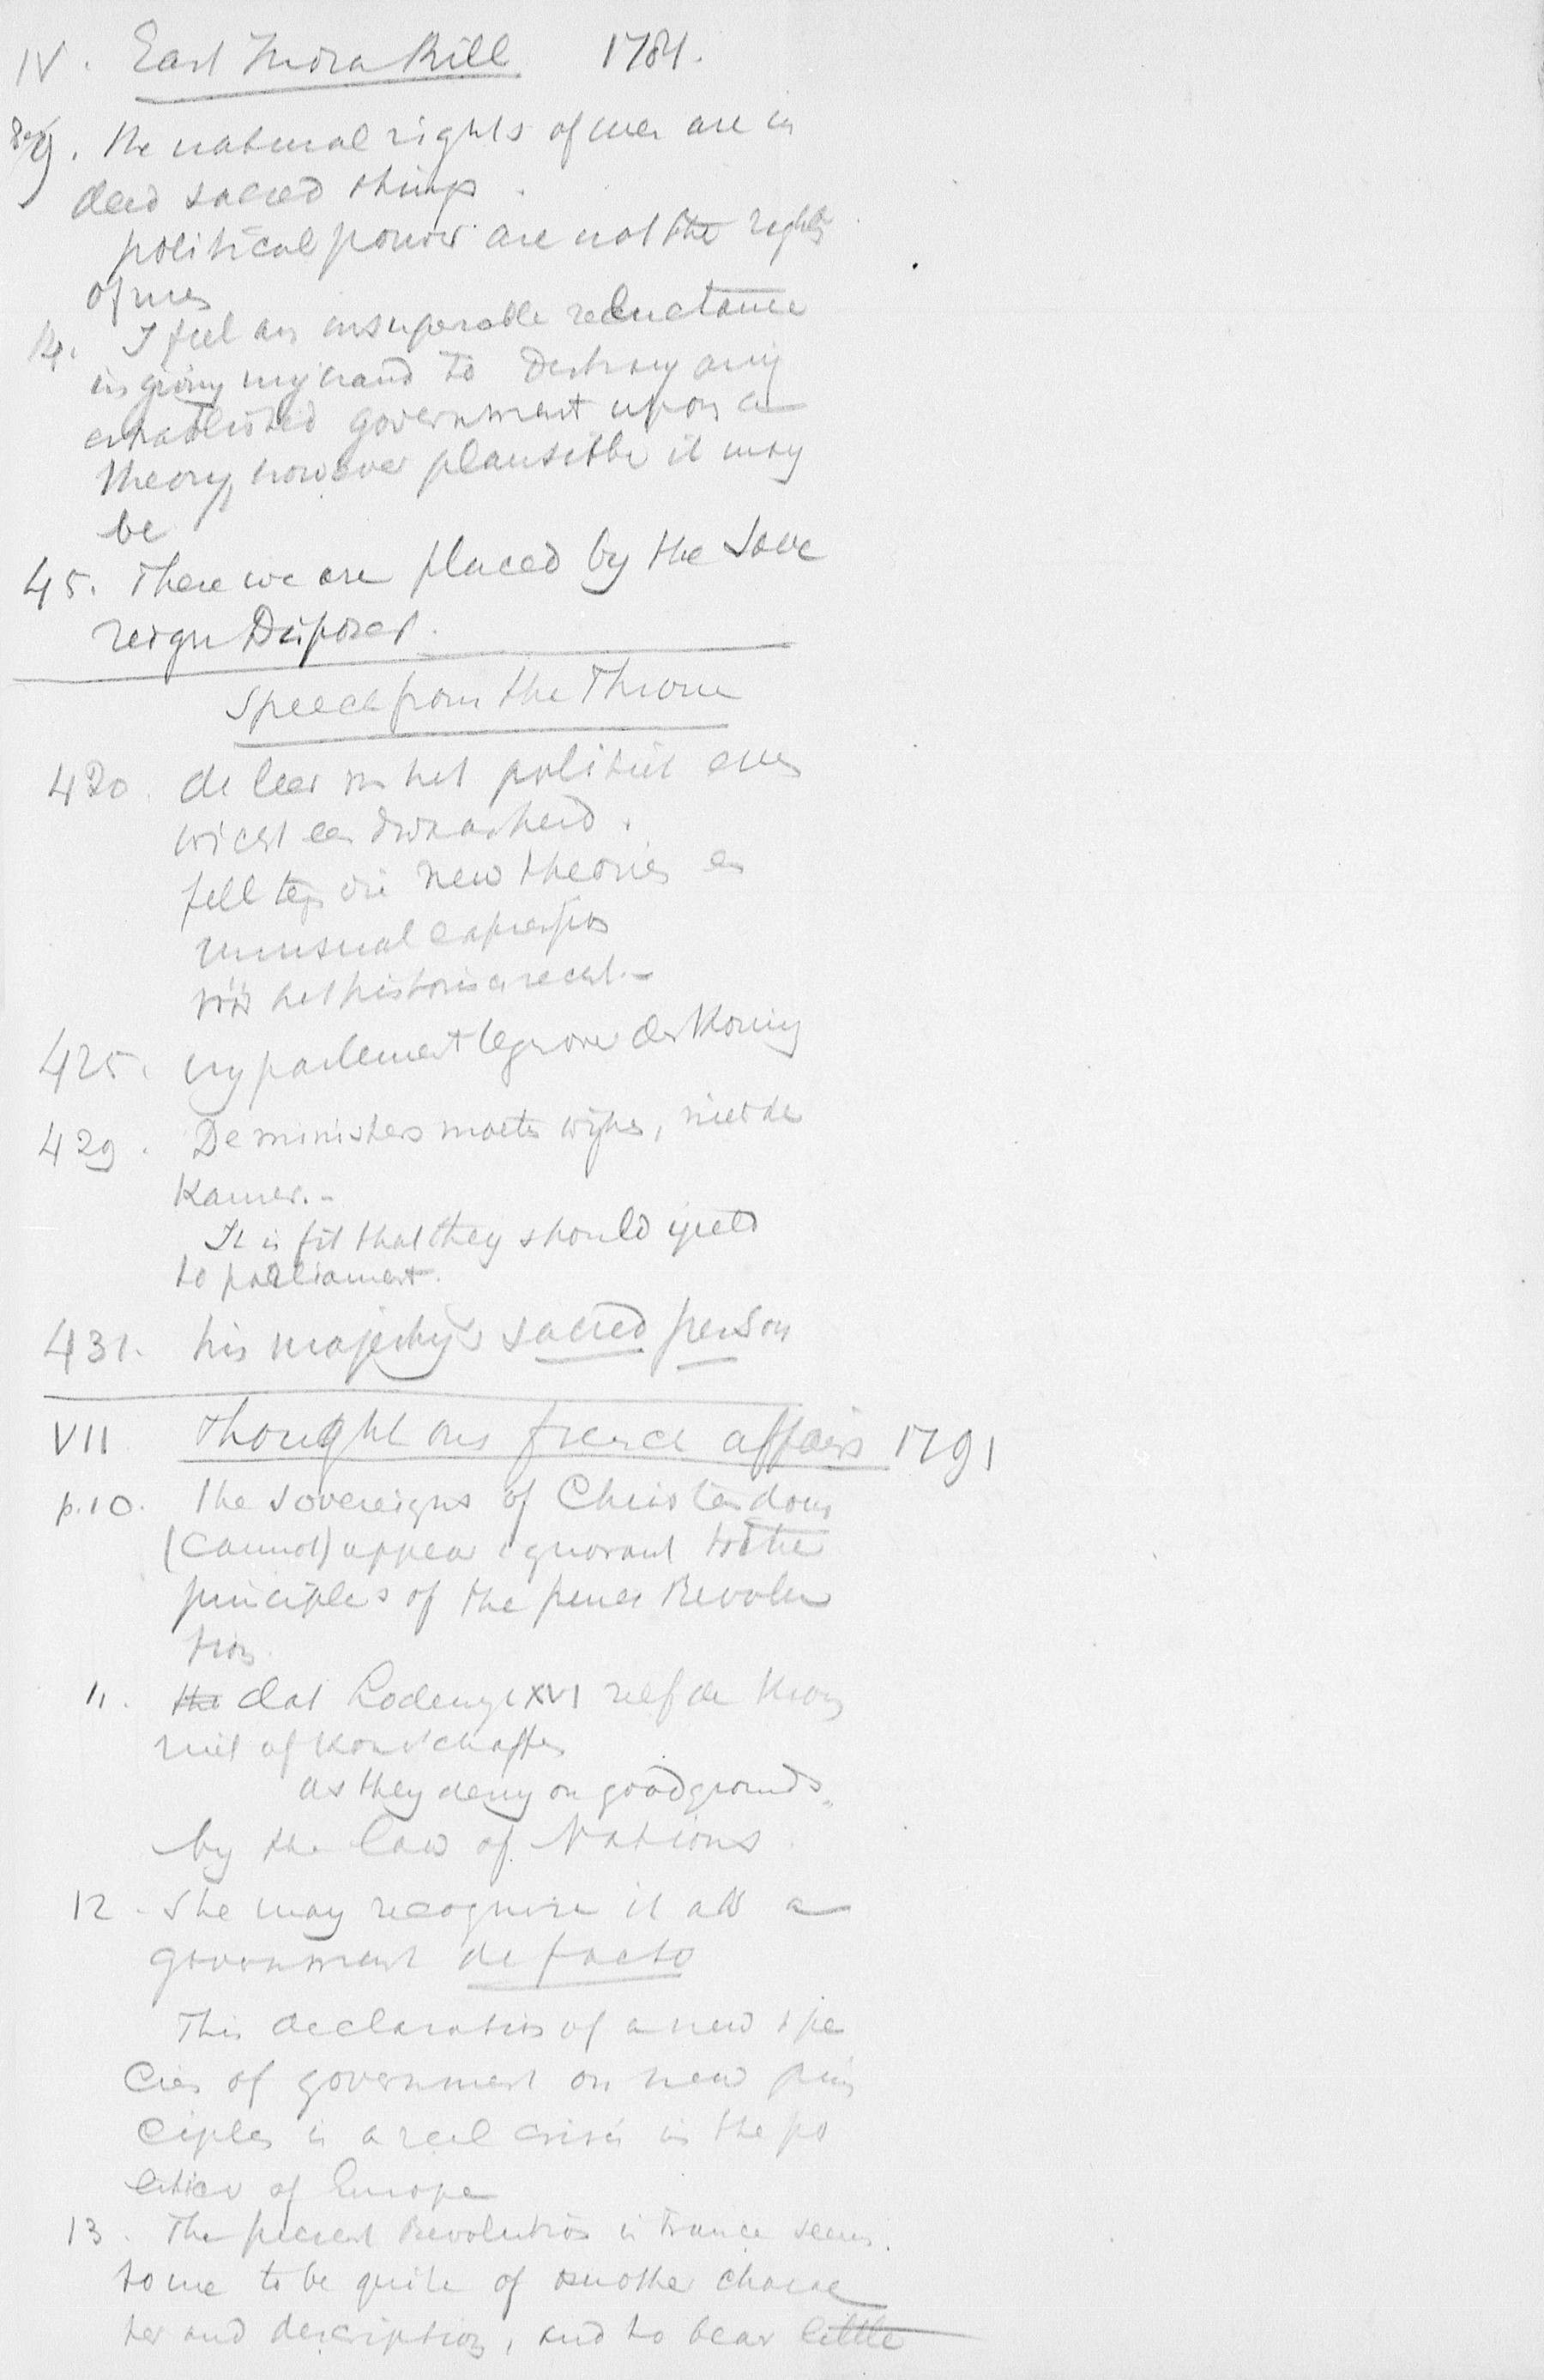 IV. East India Bill 1784.
9. The natural rights of men are in
deed sacred things.
political power are not the rights
of men
14. I feel an insuperable reluctance
in giving my hand to destroy any
established government upon a
theory, however plausible it may
be
45. There we are placed by the Sove
reign Disposer.
Speech from the Throne
420. de leer van het politiek even
wicht een dwaasheid.
fel tegen die new theories en
unusual expressions
vóór het historisch recht.-
425. en parlement tegenover den Koning
429. De ministers moeten wijken, niet de
Kamer.-
It is fit that they should yield
to parliament.
431. his majesty's sacred person
VII Thought on french affairs 1791
p. 10. The sovereigns of Christendom
(cannot) appear ignorant to the
principles of the french Revolu
tion.
11. the dat Lodewijk XVI zelf de kroon
niet af kon schaffen
as they deny on good grounds,
by the law of Nations.
12. She may recognise it as a
government de facto
This declaration of a new spe
cies of government on new prin
ciples is a real crisis in the po
litics of Europe
13. The present Revolution in France seems
to me to be quite of another charac
ter and description, and to bear little